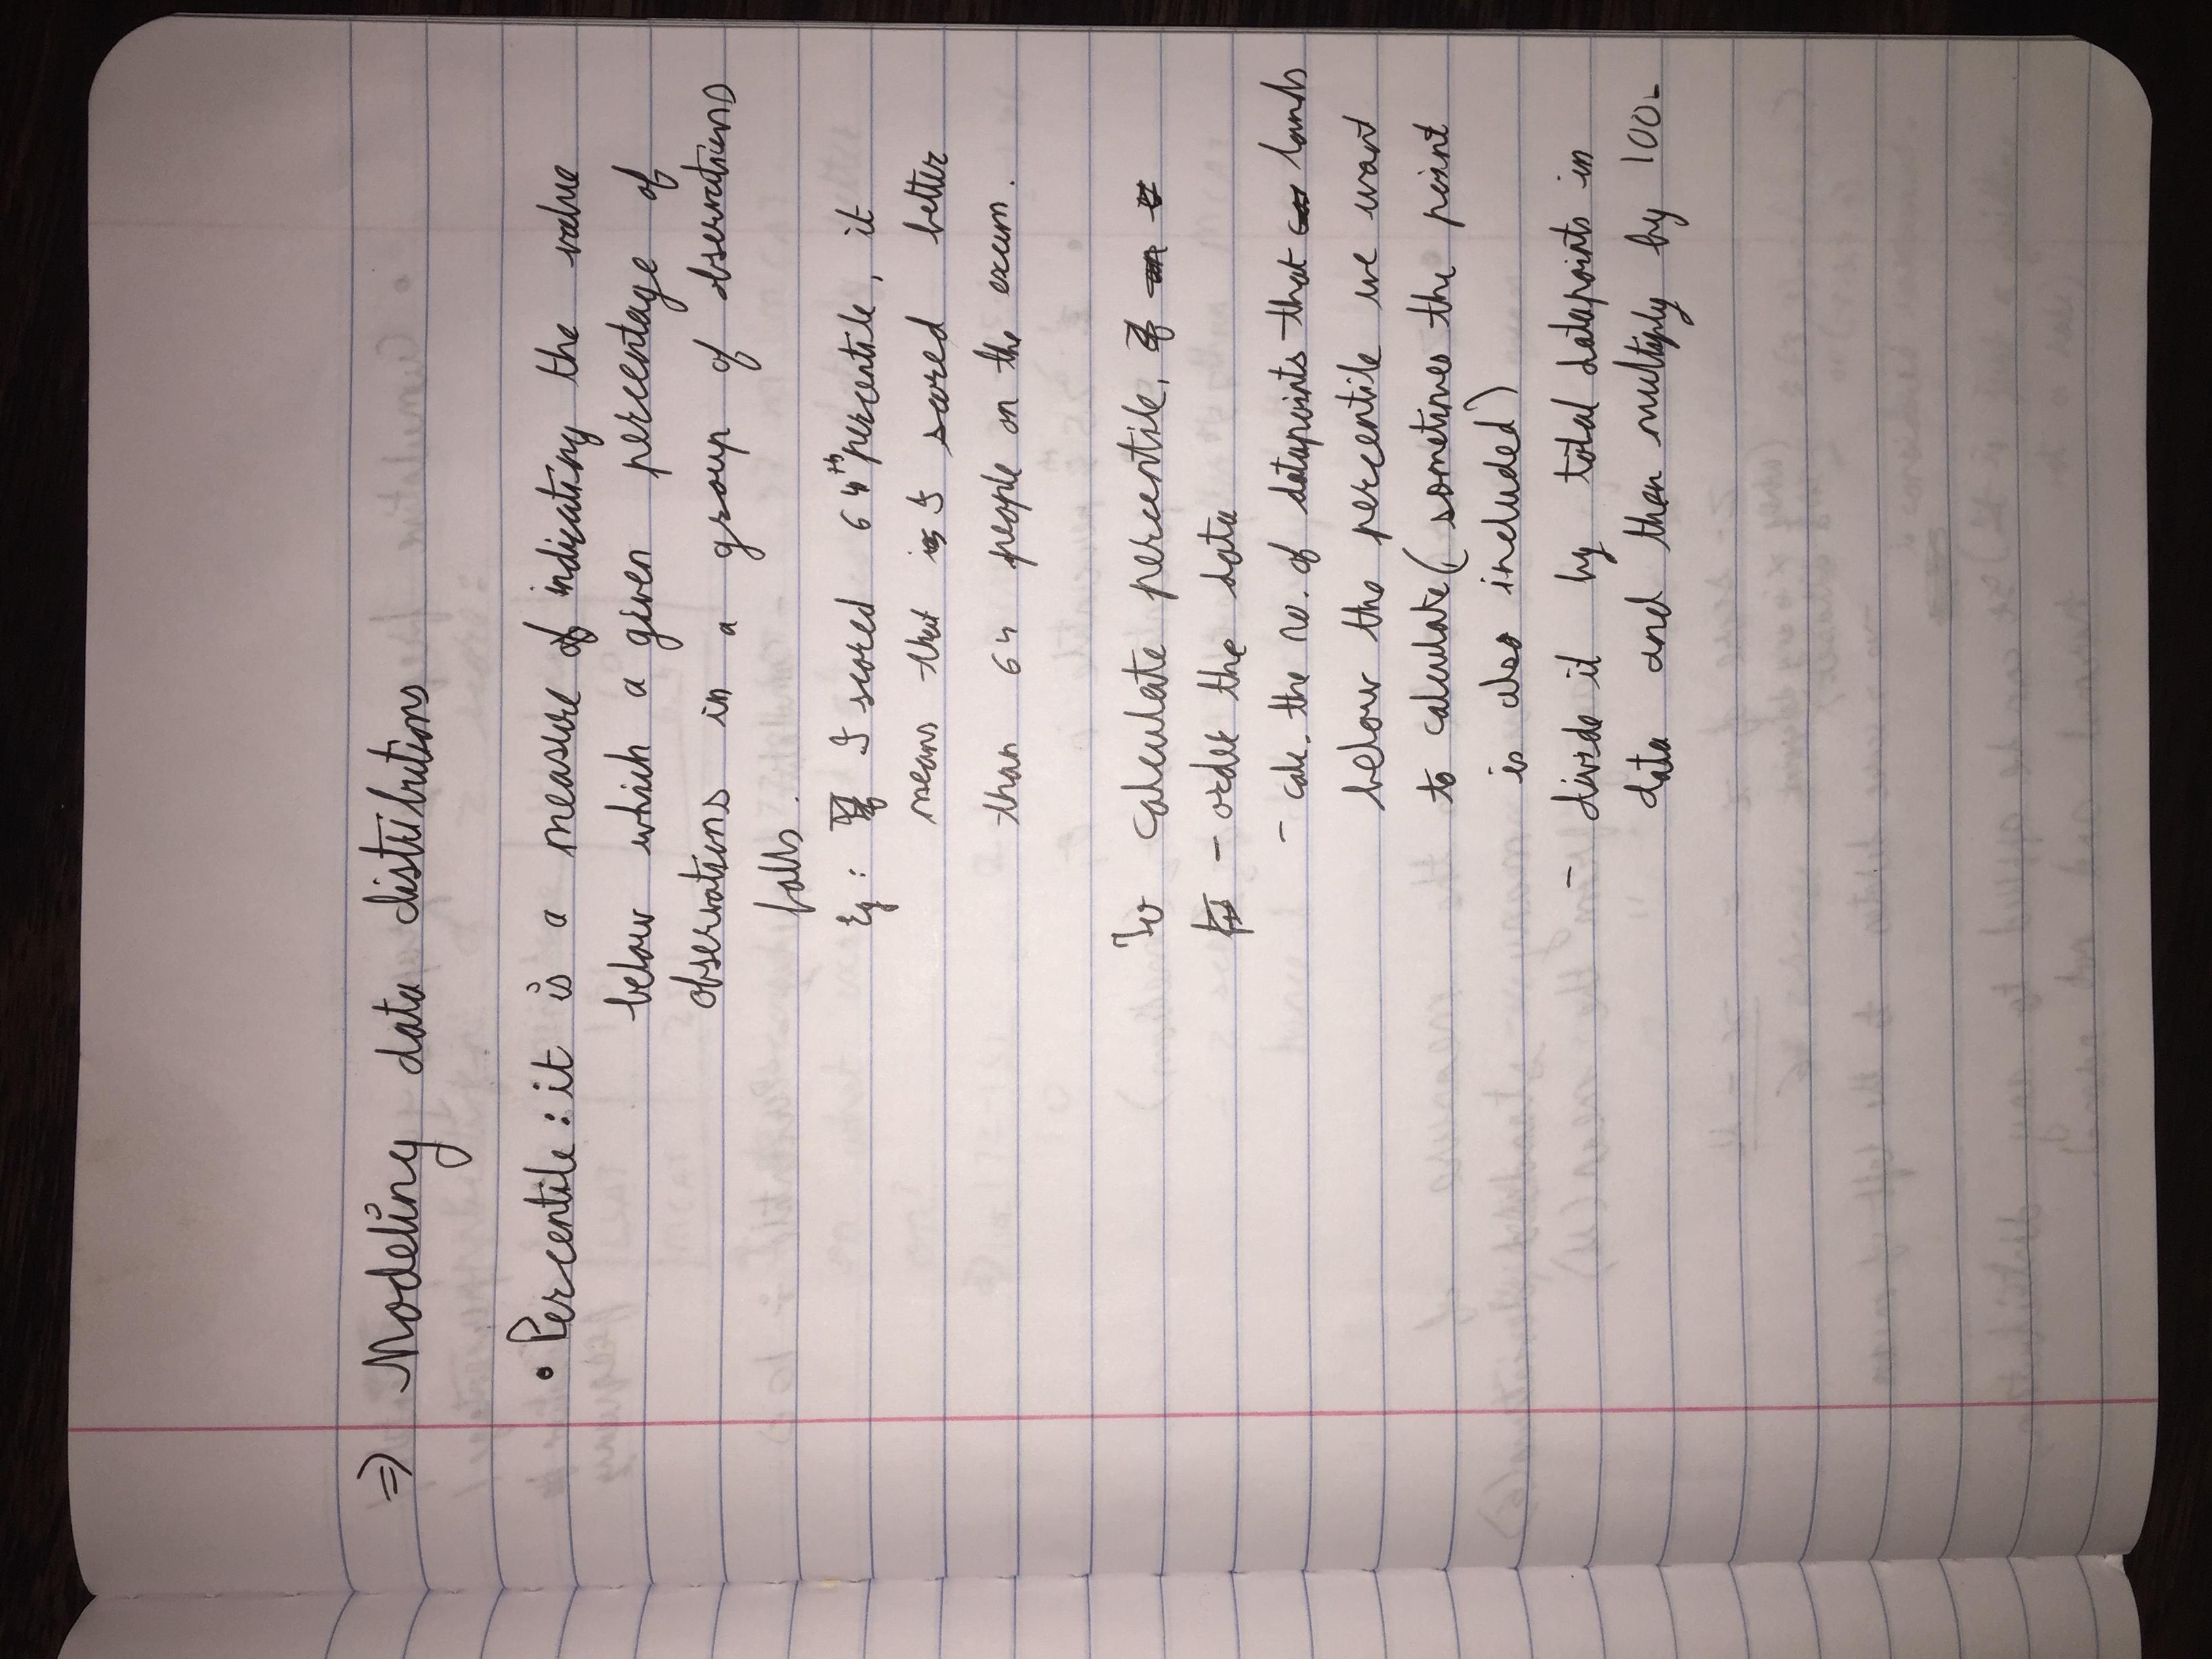 ⇒ Modeling data distributions
• Percentile : it is a measure of indicating the value
below which a given percentage of
observations in a group of observations
falls.
Eg : I scored 64th percentile, it
means that I scored better
than 64 people on the exam.
To calculate percentile,
- order the data
- calc. the no. of datapoints that lands
below the percentile we want
to calculate ( sometimes the point
is also included )
- divide it by total datapoints in
data and then multiply by 100.